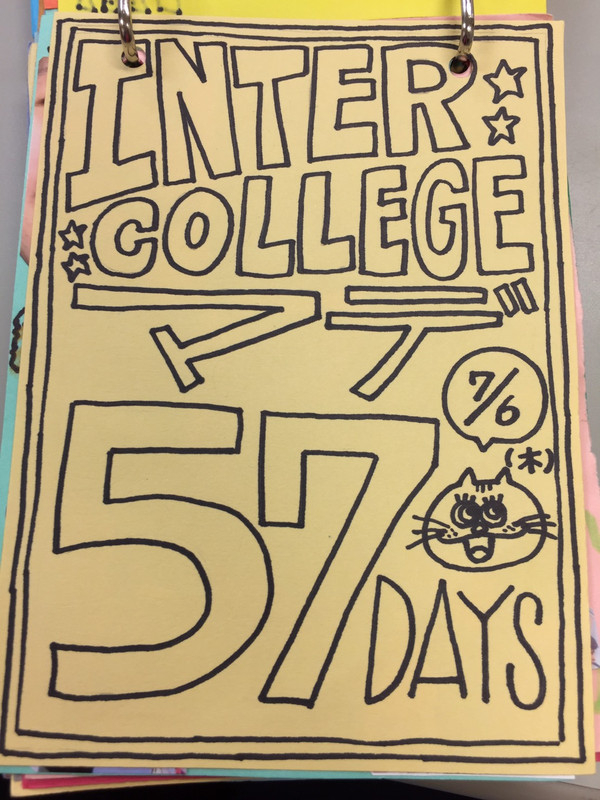 INTER
COLLEGE
マデ
7/6
(木)
57
DAYS